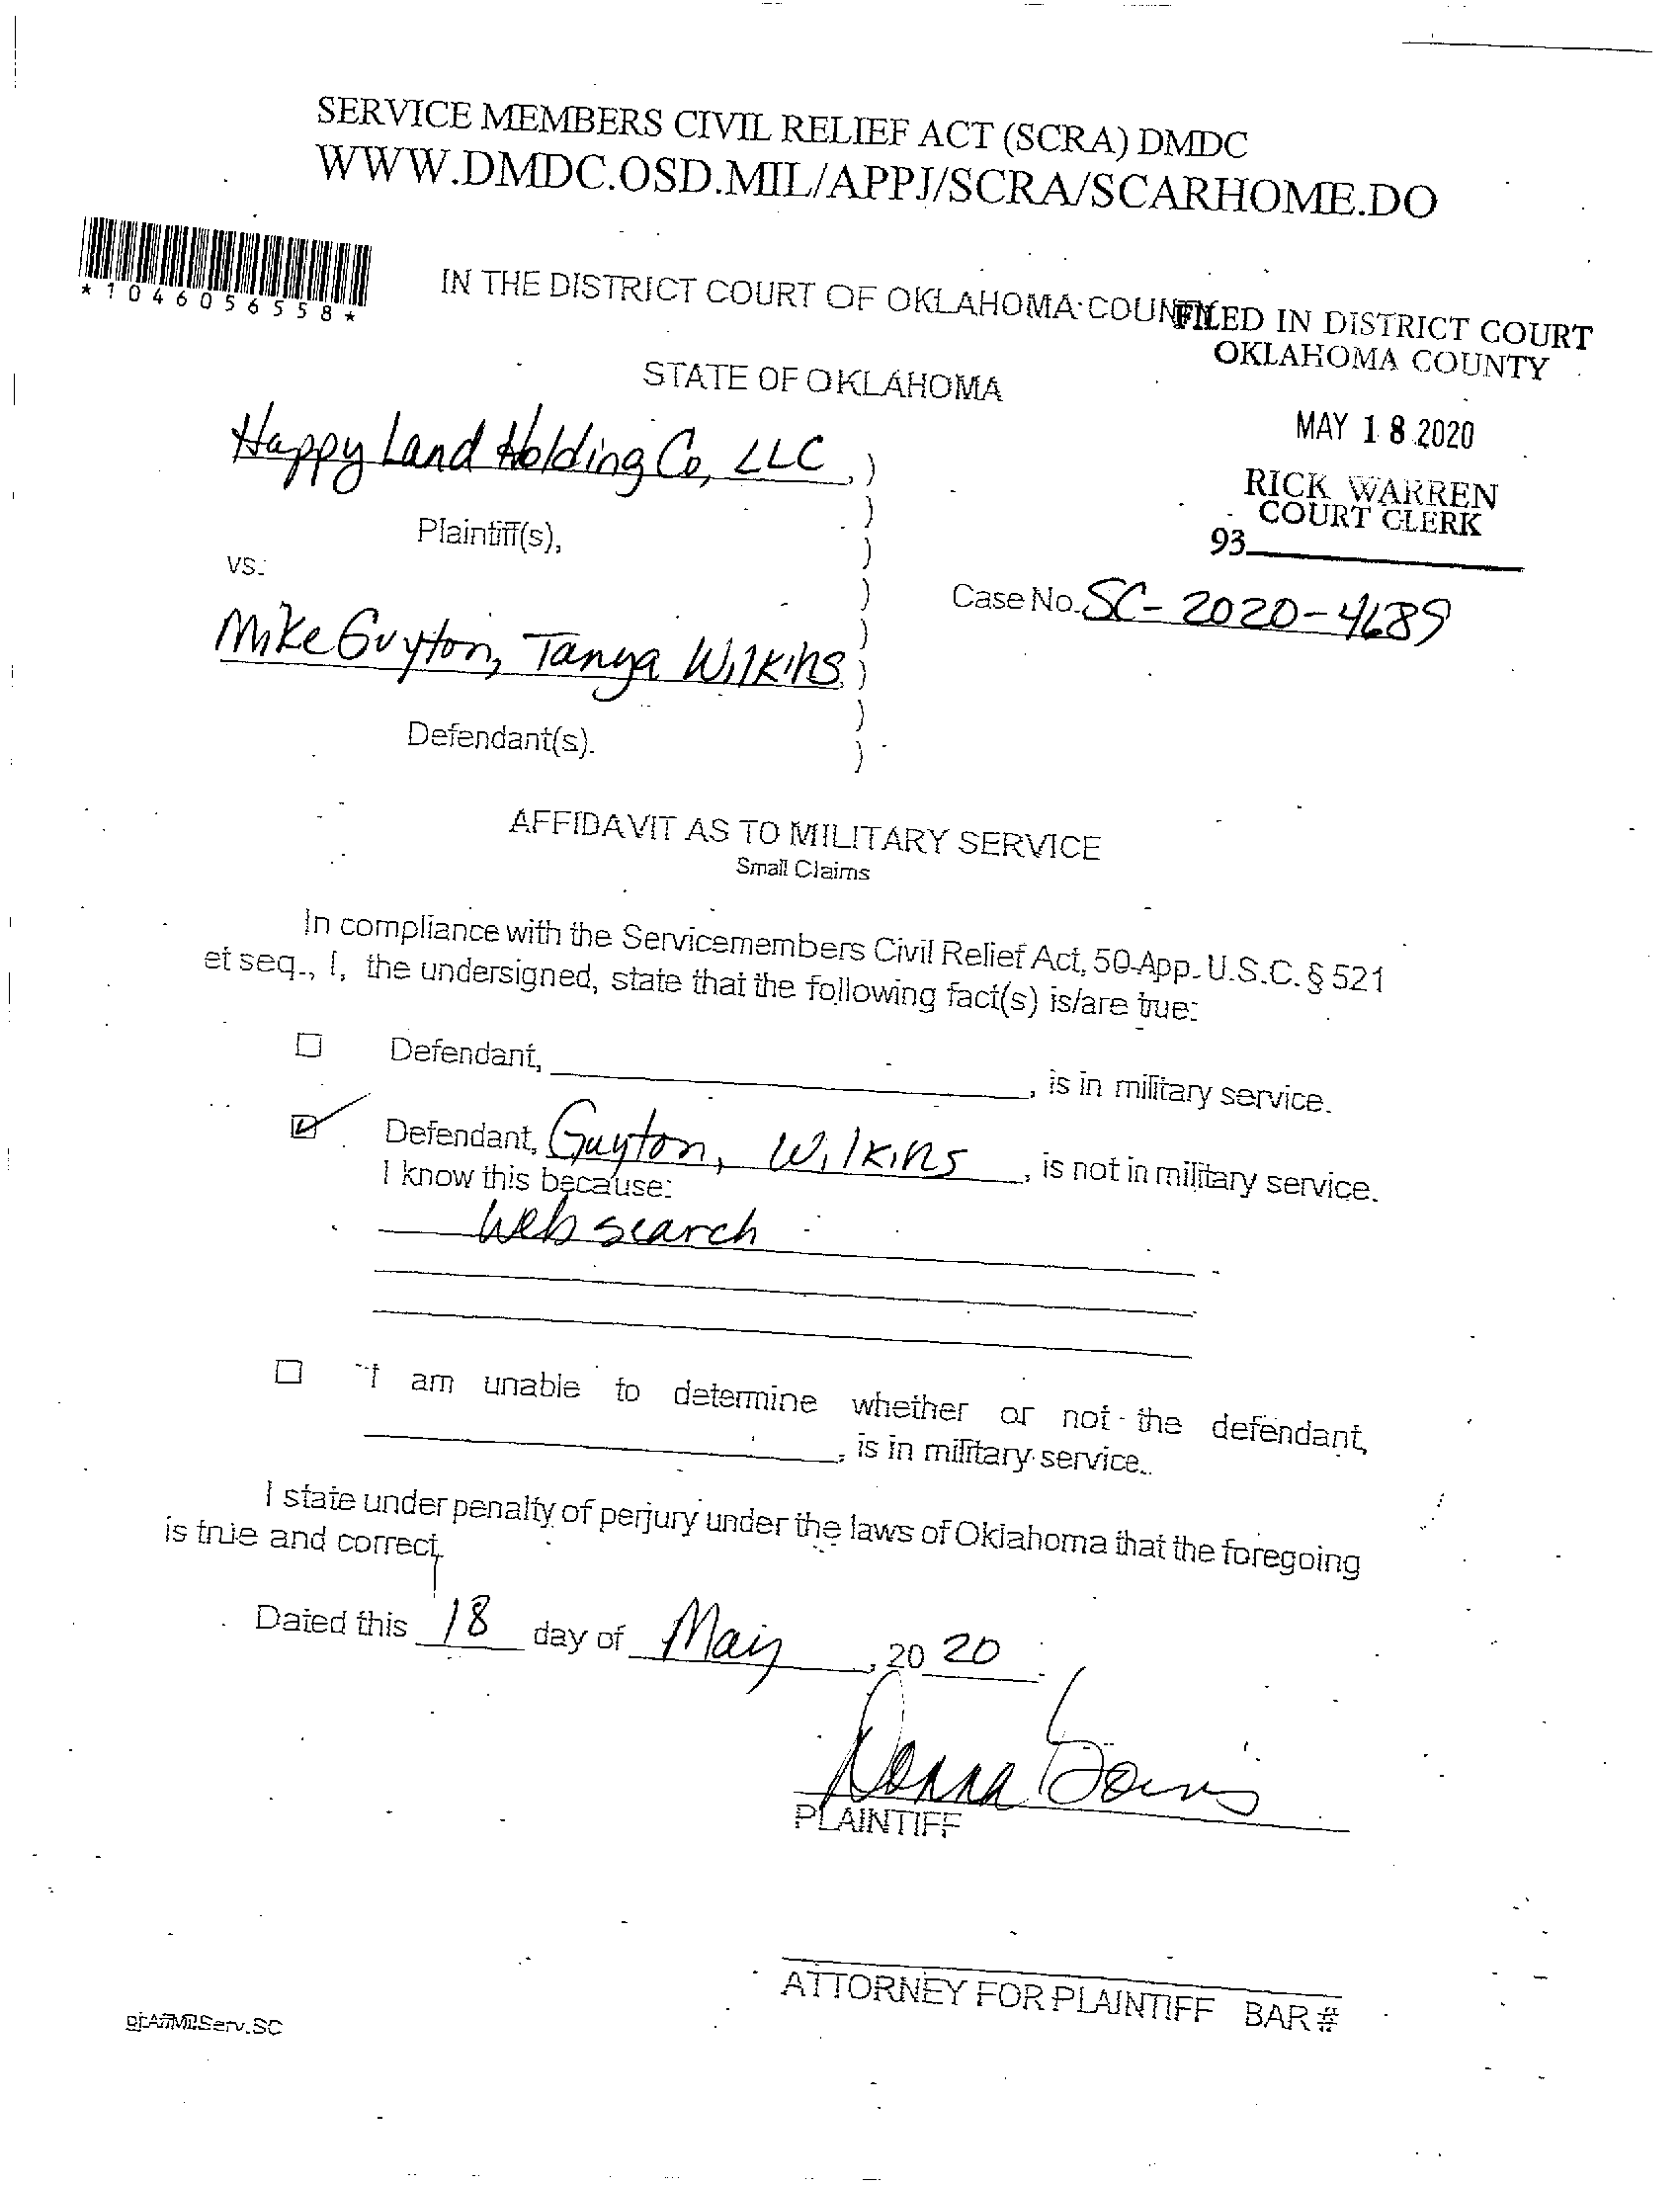 SERVICE MEMBERS CIVIL RELIEF ACT (SCRA) DMDC
WWW.DMDC.OSD.MIL/APPJ/SCRA/SCARHOME.DO
*1046056558*
IN THE DISTRICT COURT OF OKLAHOMA COUNTY
FILED IN DISTRICT COURT
OKLAHOMA COUNTY
STATE OF OKLAHOMA
MAY 18 2020
RICK WARREN
COURT CLERK
93
Happy Land Holding Co, LLC,
Plaintiff(s),
vs.
Case No. SC-2020-4689
Mike Guyton, Tanya Wilkins
Defendant(s).
AFFIDAVIT AS TO MILITARY SERVICE
Small Claims
In compliance with the Servicemembers Civil Relief Act, 50 App. U.S.C. § 521
et seq., I, the undersigned, state that the following fact(s) is/are true:
Defendant, , is in military service.
Defendant, Guyton, Wilkins, is not in military service.
I know this because:
Web search
I am unable to determine whether or not the defendant,
, is in military service.
I state under penalty of perjury under the laws of Oklahoma that the foregoing
is true and correct.
Dated this 18 day of May, 20 20.
Donna
PLAINTIFF
ATTORNEY FOR PLAINTIFF BAR #